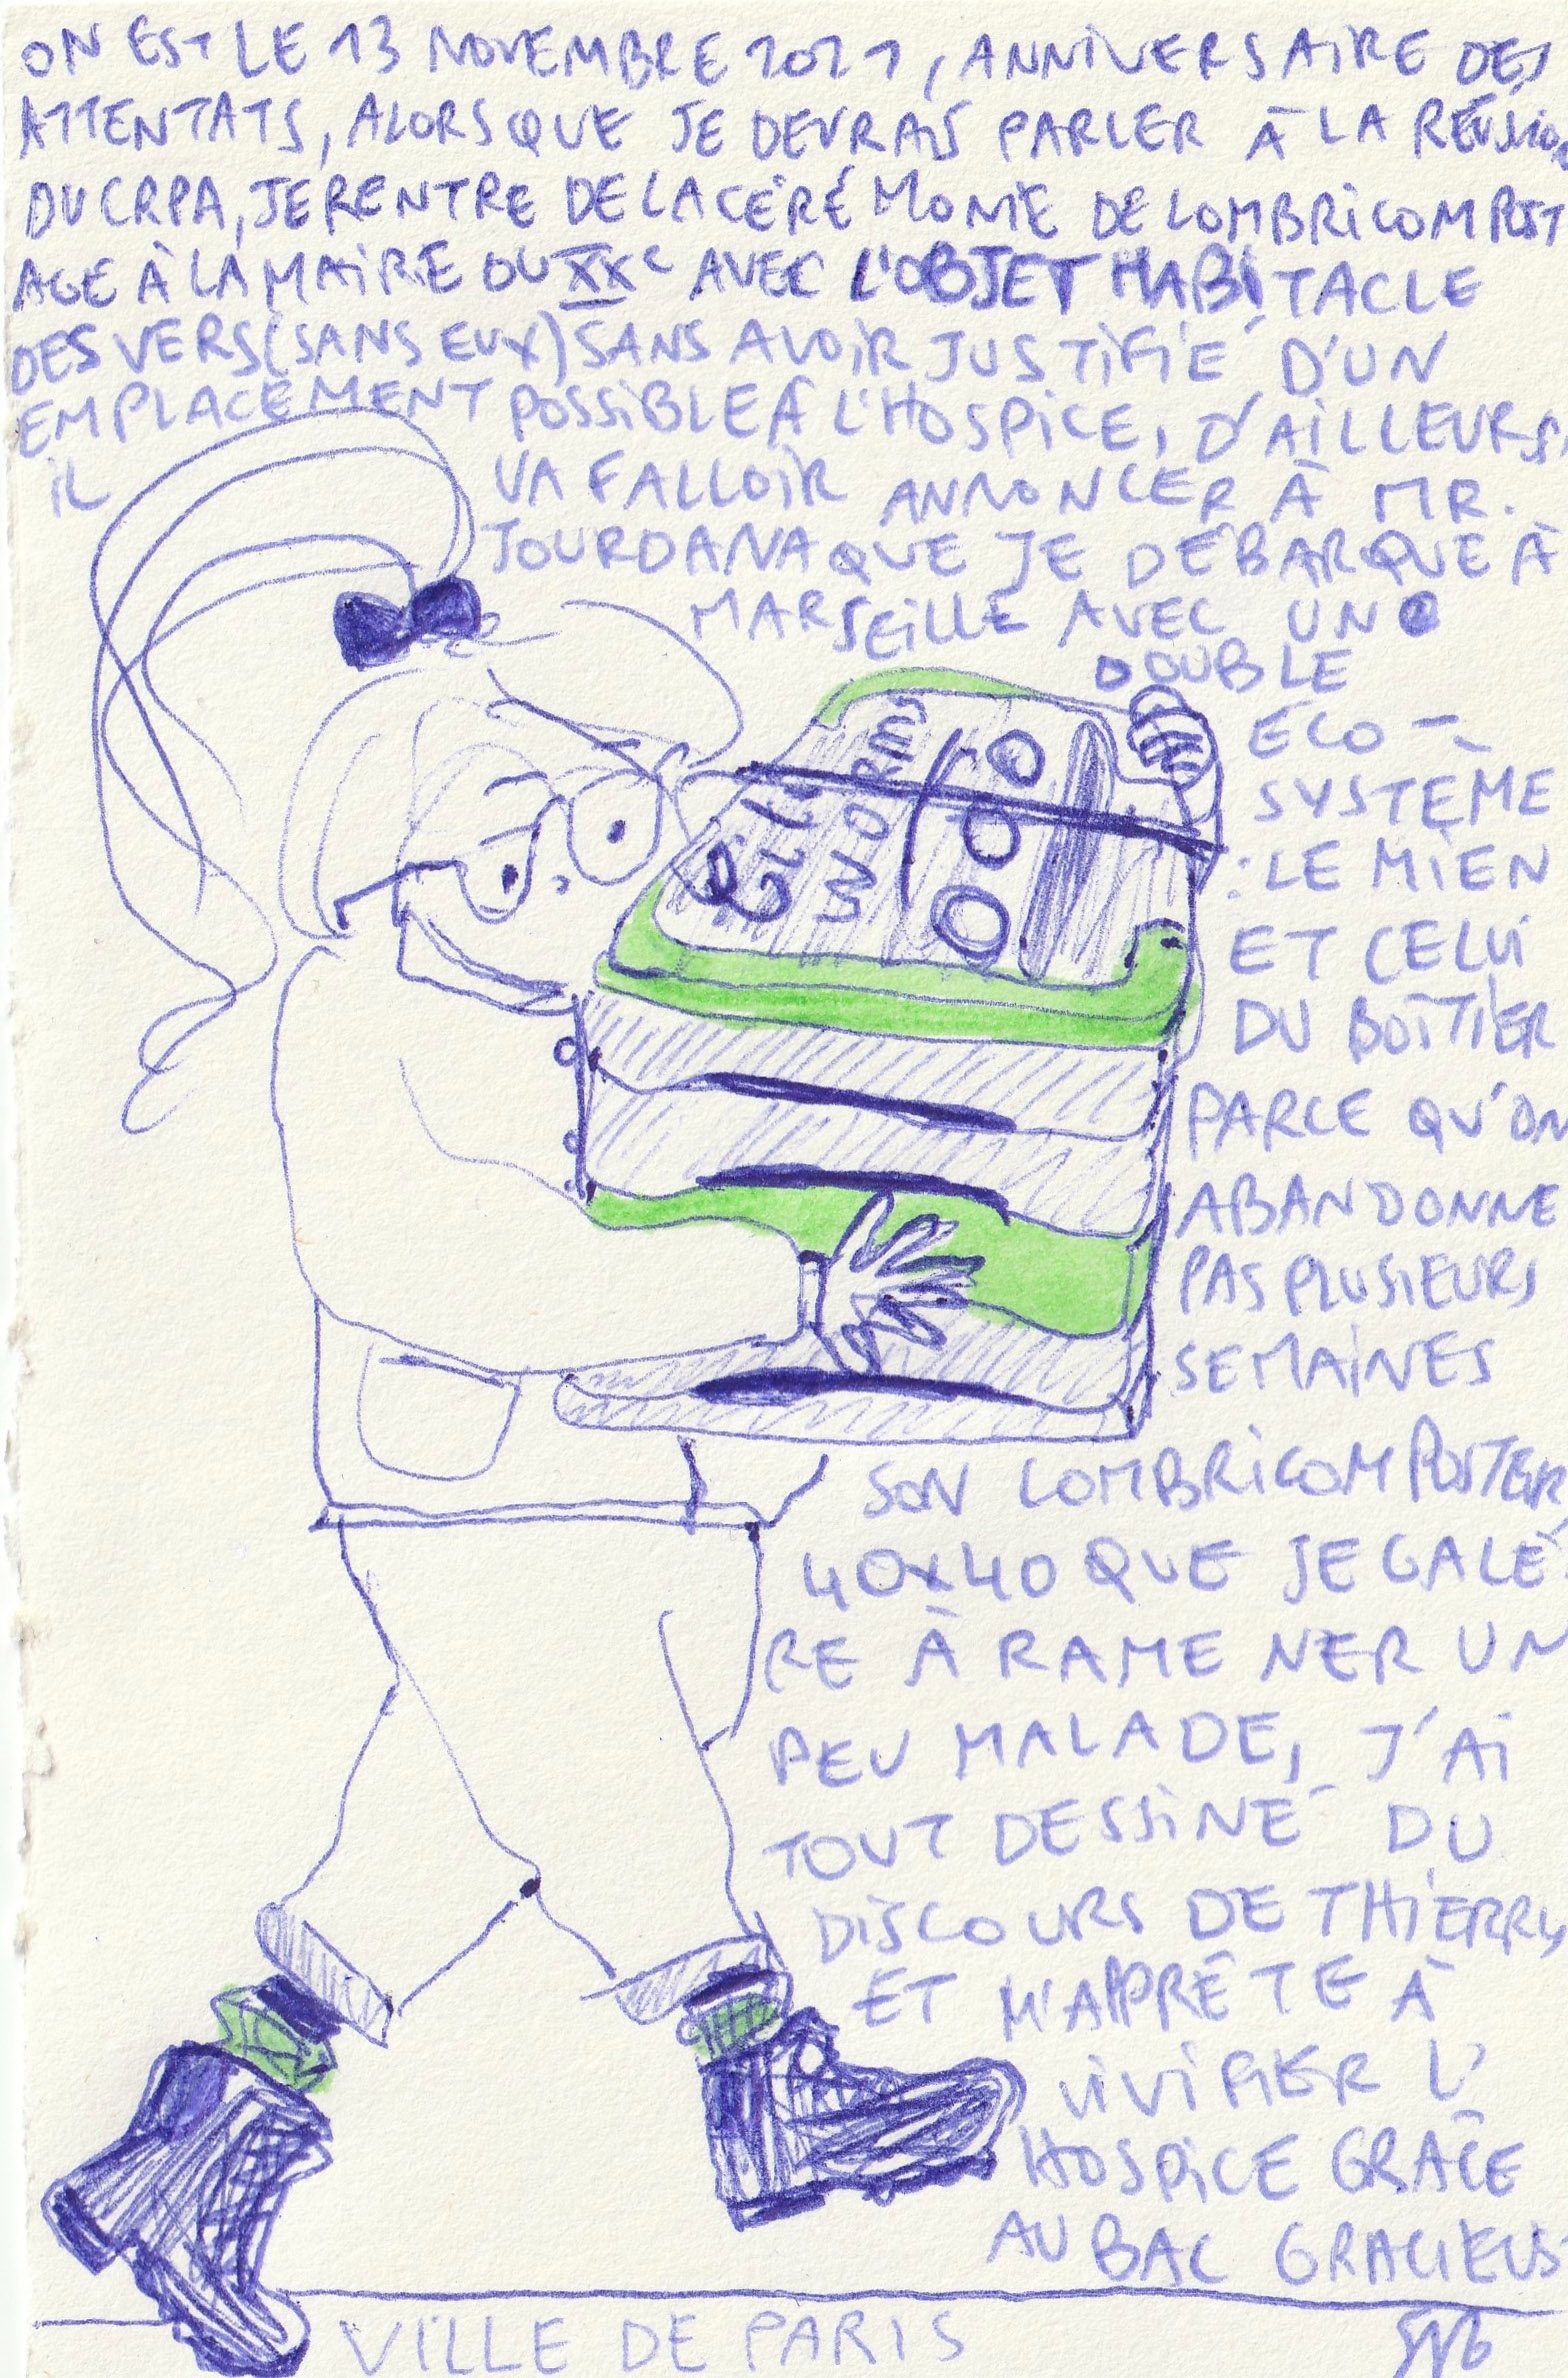 ON EST LE 13 NOVEMBRE 2021, ANNIVERSAIRE DES
ATTENTATS, ALORS QUE JE DEVRAIS PARLER À LA RÉUNION
DU CRPA, JE RENTRE DE LA CÉRÉMONIE DE LOMBRICOMPOST
AGE À LA MAIRIE DU XXe AVEC L'OBJET HABITACLE
DES VERS (SANS EUX) SANS AVOIR JUSTIFIÉ D'UN
EMPLACEMENT POSSIBLE À L'HOSPICE, D'AILLEURS,
IL VA FALLOIR ANNONCER À MR.
JOURDANA QUE JE DÉBARQUE À
MARSEILLE AVEC UN
DOUBLE
ECO-
SYSTÈME
: LE MIEN
ET CELUI
DU BOÎTIER
PARCE QU'ON
ABANDONNE
PAS PLUSIEURS
SEMAINES
SON LOMBRICOMPOSTER
40x40 QUE JE GALÈ
RE À RAMENER UN
PEU MALADE, J'AI
TOUT DESSINÉ DU
DISCOURS DE THIERRY
ET M'APPRÊTE À
VIVIFIER L'
HOSPICE GRÂCE
AU BAC GRACIEUSE
VILLE DE PARIS
WORMS